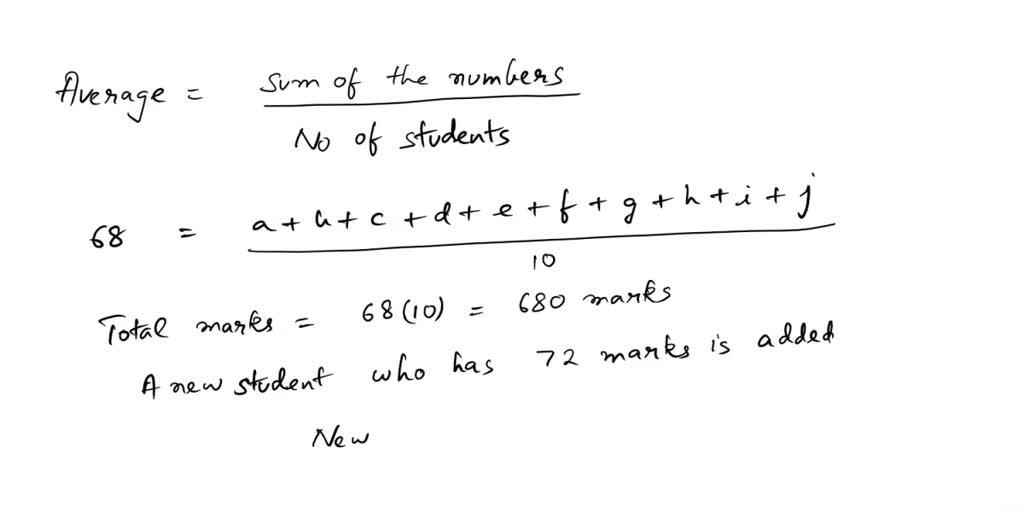 Average = sum of the numbers / No of students
68 = a + b + c + d + e + f + g + h + i + j / 10
Total marks = 68 (10) = 680 marks
A new student who has 72 marks is added
New